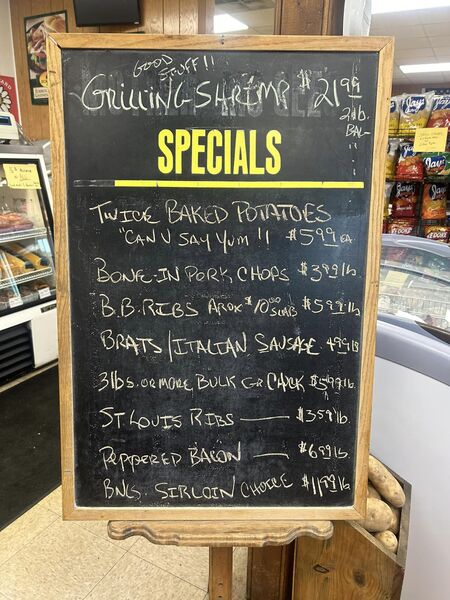 GOOD
STUFF!!
GRILLING SHRIMP $21 99
2 lb.
BAG
SPECIALS
TWICE BAKED POTATOES
"CAN U SAY YUM"!! $5 99 EA
BONE-IN PORK CHOPS $3 99 lb
B.B. RIBS APROX $10.00 SLABS $5 99 lb
BRATS/ITALIAN SAUSAGE 4 99 lb
3 lbs. OR MORE BULK GR CHUCK $5 49 lb.
ST LOUIS RIBS — $3 59 lb
PEPPERED BACON — $6 99 lb.
BNLS. SIRLOIN CHOICE $11 99 lb
Jays
Jays